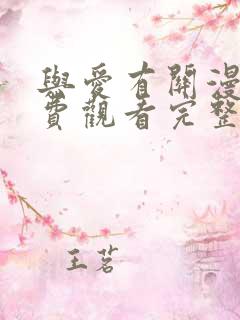 與愛有關漫
費觀看完整
王茗